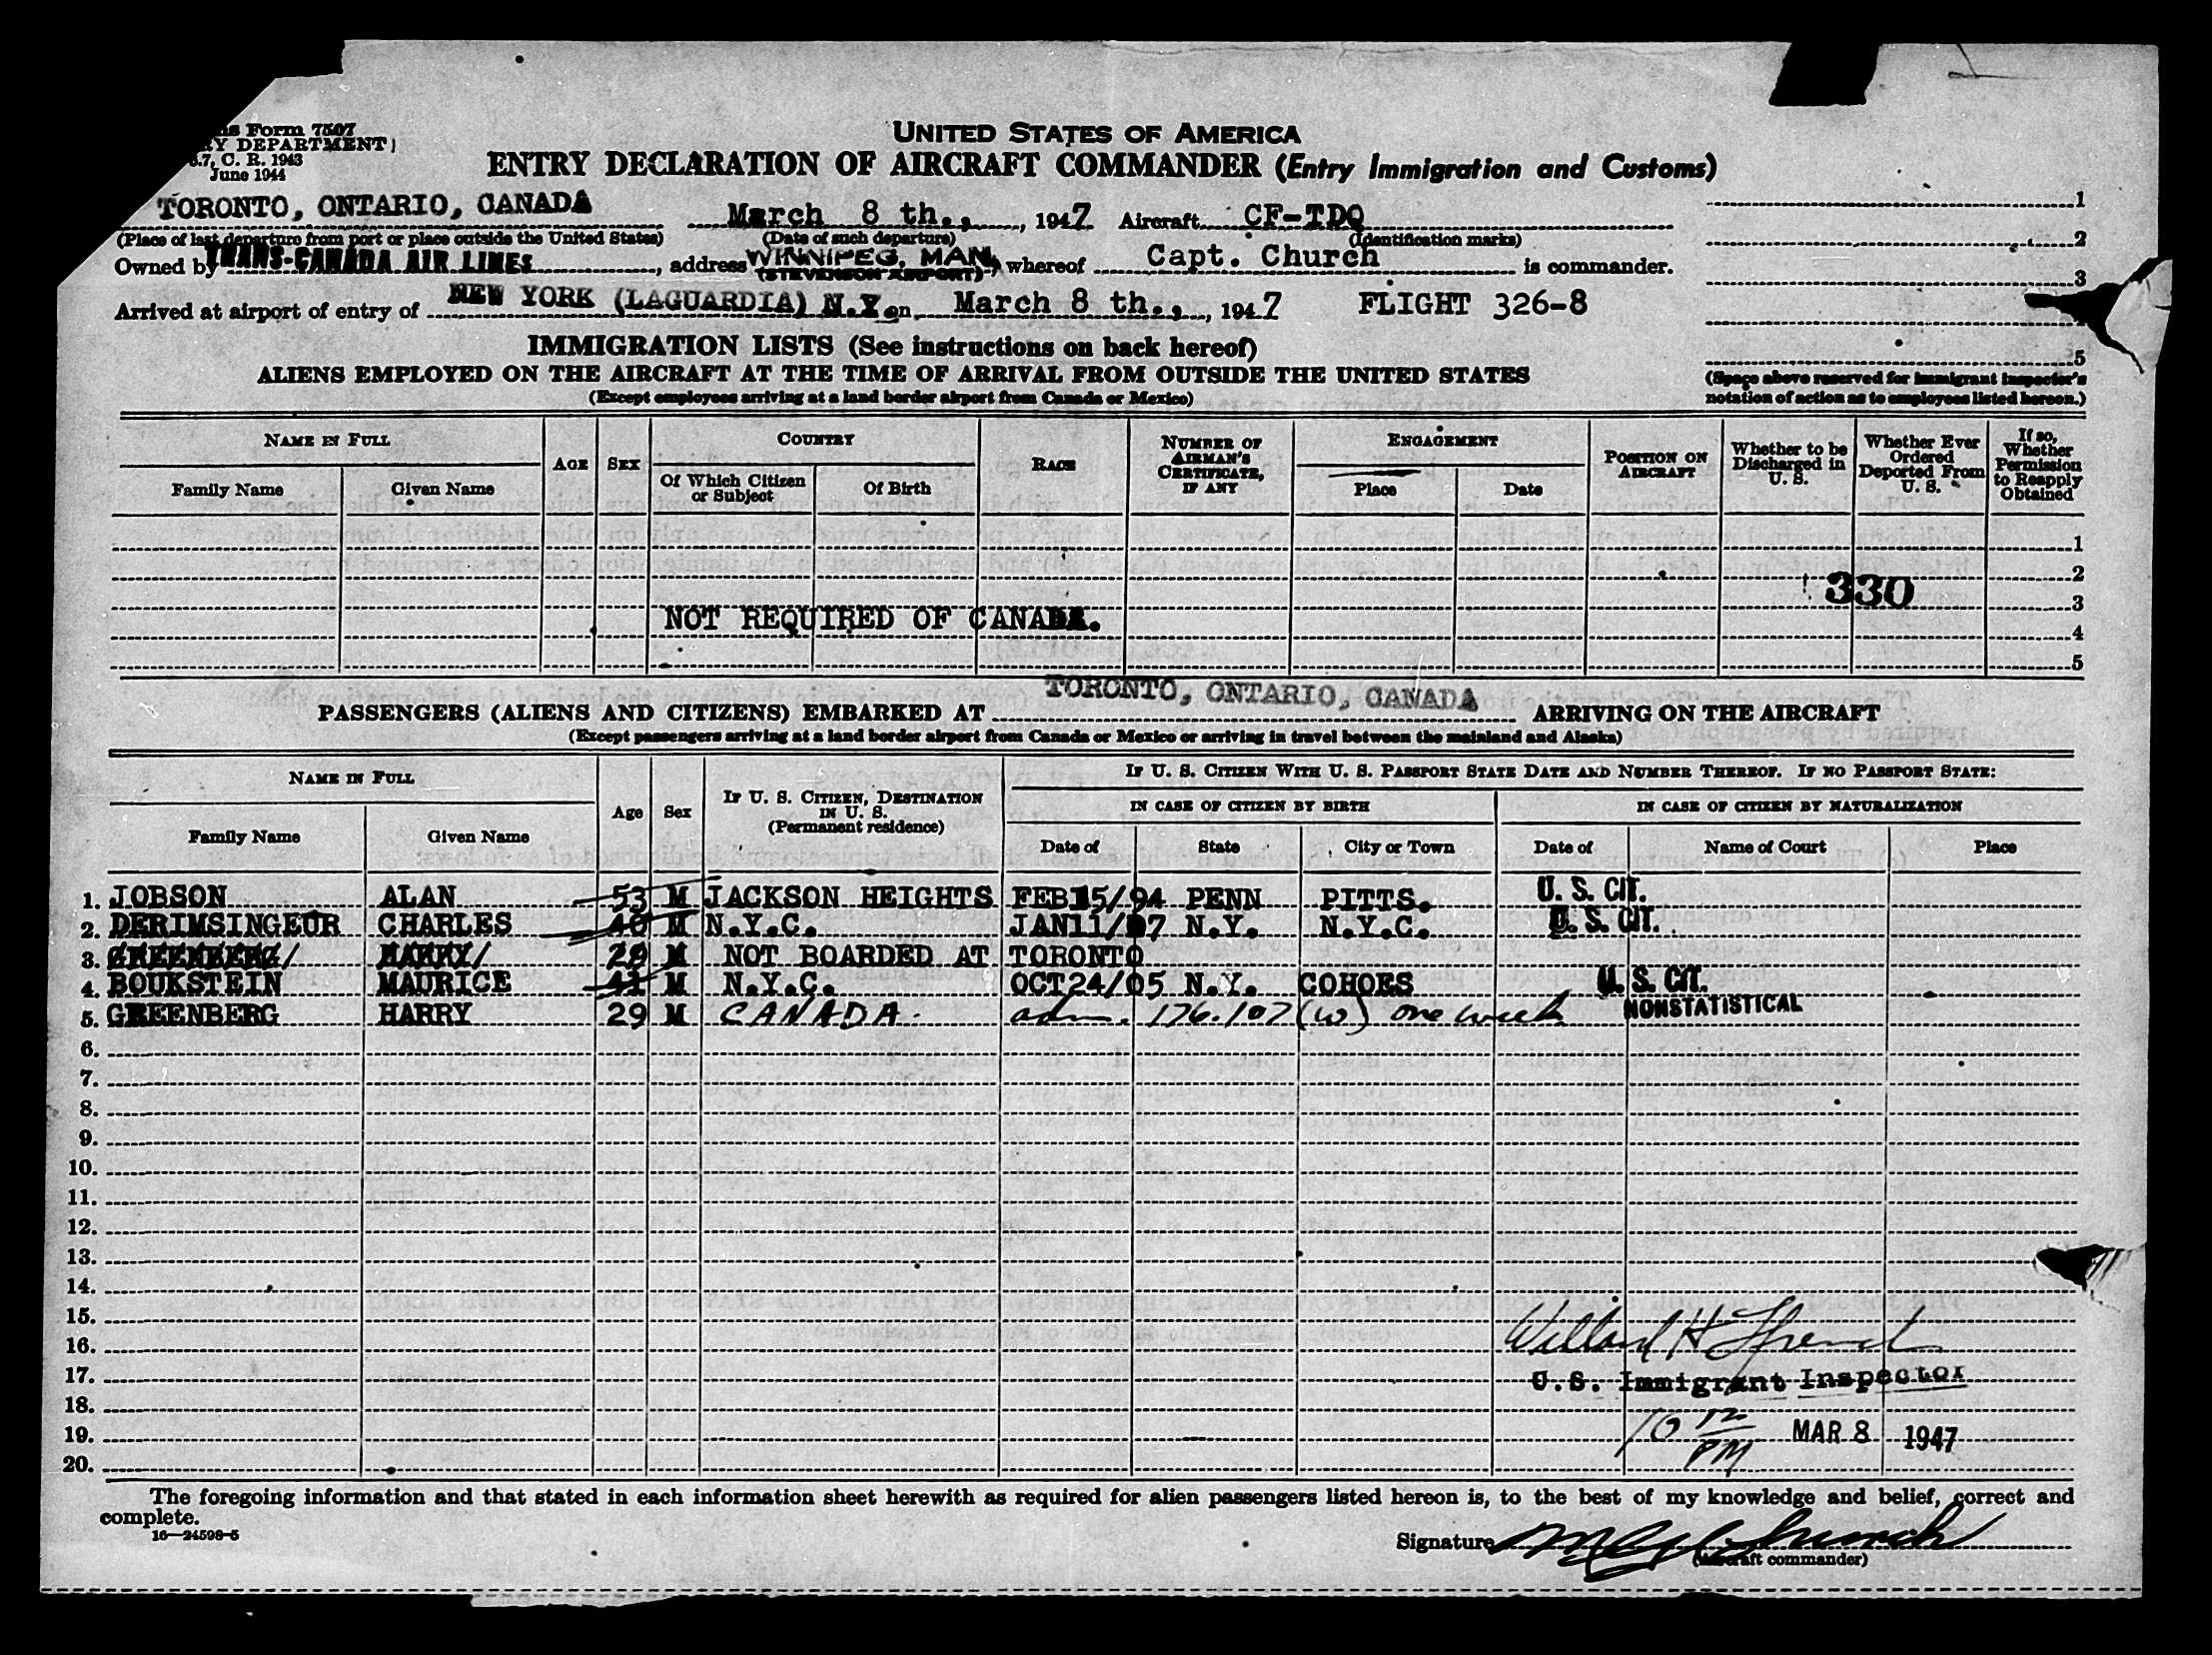 ms Form 7507
RY DEPARTMENT)
6.7, C. R. 1943
June 1944
UNITED STATES OF AMERICA
ENTRY DECLARATION OF AIRCRAFT COMMANDER (Entry Immigration and Customs)
TORONTO, ONTARIO, CANADA March 8 th., , 1947 Aircraft CF-TDQ 1
(Place of last departure from port or place outside the United States) (Date of such departure) (Identification marks) 2
Owned by TRANS-CANADA AIR LINES , address WINNIPEG, MAN. (STEVENSON AIRPORT) , whereof Capt. Church is commander. 3
Arrived at airport of entry of NEW YORK (LAGUARDIA) N.Y. on March 8 th., , 1947 FLIGHT 326-8
IMMIGRATION LISTS (See instructions on back hereof) 5
ALIENS EMPLOYED ON THE AIRCRAFT AT THE TIME OF ARRIVAL FROM OUTSIDE THE UNITED STATES
(Except employees arriving at a land border airport from Canada or Mexico)
(Space above reserved for immigrant inspector's
notation of action as to employees listed hereon.)
NAME IN FULL AGE SEX COUNTRY RACE NUMBER OF AIRMAN'S CERTIFICATE, IF ANY ENGAGEMENT POSITION ON AIRCRAFT Whether to be Discharged in U. S. Whether Ever Ordered Deported From U. S. If so, Whether Permission to Reapply Obtained
Family Name Given Name Of Which Citizen or Subject Of Birth Place Date
1
2
330
3
NOT REQUIRED OF CANADA.
4
5
PASSENGERS (ALIENS AND CITIZENS) EMBARKED AT TORONTO, ONTARIO, CANADA ARRIVING ON THE AIRCRAFT
(Except passengers arriving at a land border airport from Canada or Mexico or arriving in travel between the mainland and Alaska)
NAME IN FULL Age Sex IF U. S. CITIZEN, DESTINATION IN U. S. (Permanent residence) IF U. S. CITIZEN WITH U. S. PASSPORT STATE DATE AND NUMBER THEREOF. IF NO PASSPORT STATE:
IN CASE OF CITIZEN BY BIRTH IN CASE OF CITIZEN BY NATURALIZATION
Family Name Given Name Date of State City or Town Date of Name of Court Place
1. JOBSON ALAN 53 M JACKSON HEIGHTS FEB15/94 PENN PITTS. U. S. CIT.
2. DERIMSINGEUR CHARLES 40 M N.Y.C. JAN11/07 N.Y. N.Y.C. U. S. CIT.
3. GREENBERG/ HARRY/ 29 M NOT BOARDED AT TORONTO
4. BOUKSTEIN MAURICE 41 M N.Y.C. OCT24/05 N.Y. COHOES U. S. CIT.
5. GREENBERG HARRY 29 M CANADA. adm. 176.107 (w) one week NONSTATISTICAL
6.
7.
8.
9.
10.
11.
12.
13.
14.
15.
16. Willard H
17. U.S. Immigrant Inspector
18.
19. 10 PM MAR 8 1947
20.
The foregoing information and that stated in each information sheet herewith as required for alien passengers listed hereon is, to the best of my knowledge and belief, correct and
complete.
16—24598-5
Signature Church
(Aircraft commander)